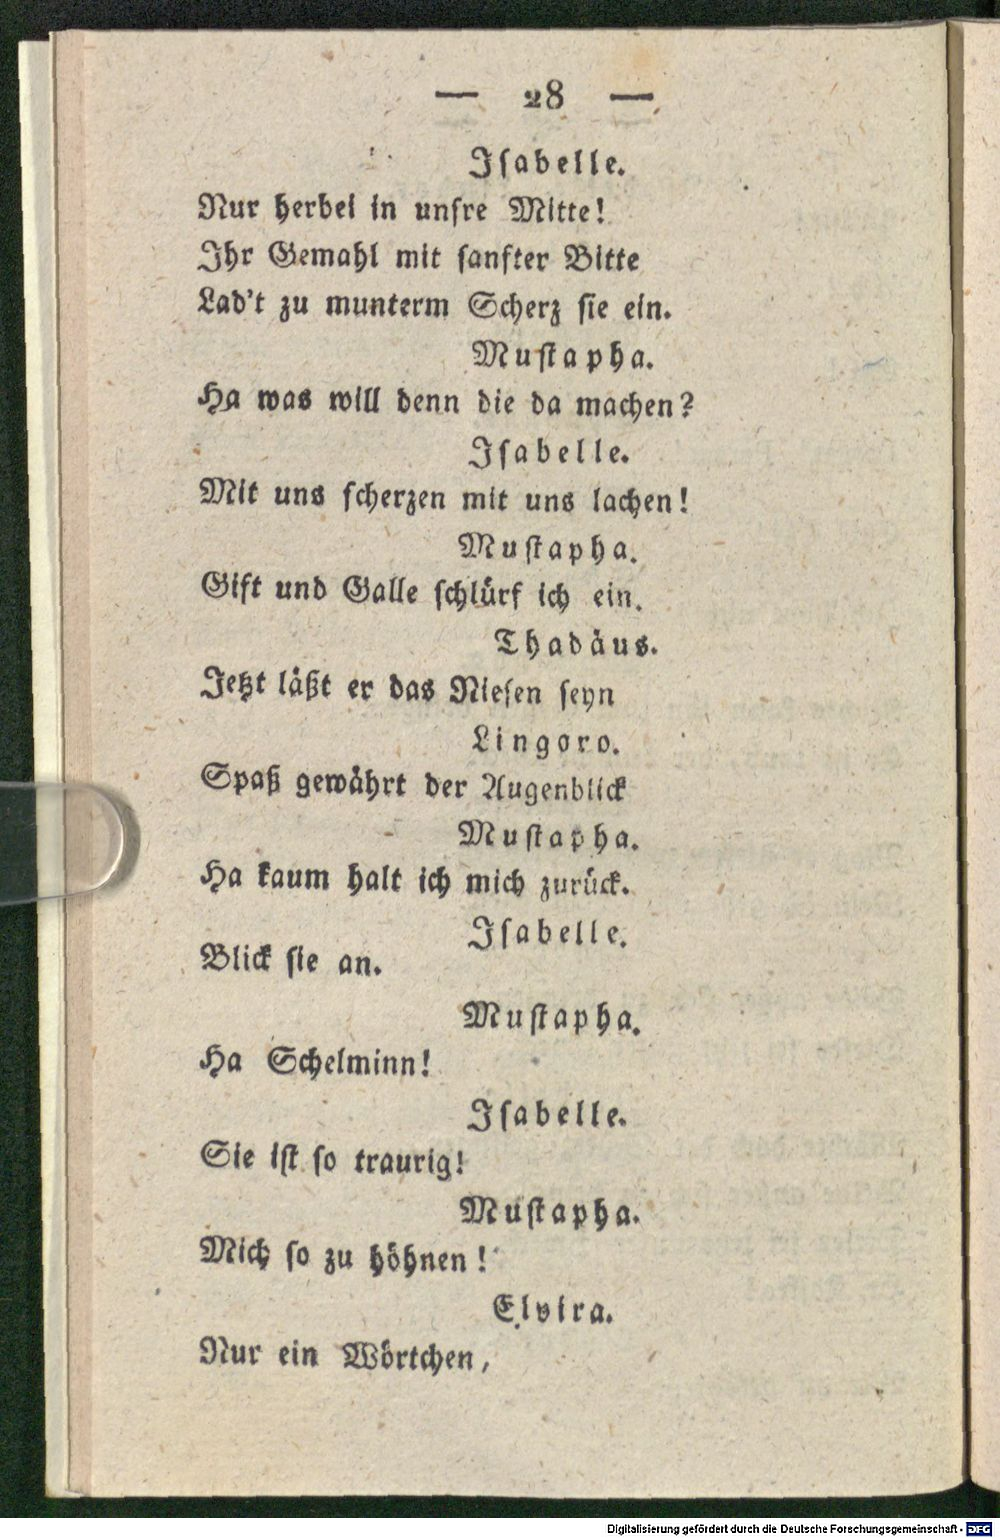 — 28 —
Isabelle.
Nur herbei in unsre Mitte!
Ihr Gemahl mit sanfter Bitte
Lad't zu munterm Scherz sie ein.
Mustapha.
Ha was will denn die da machen?
Isabelle.
Mit uns scherzen mit uns lachen!
Mustapha.
Gift und Galle schlürf ich ein.
Thadäus.
Jetzt läßt er das Niesen seyn
Lingoro.
Spaß gewährt der Augenblick
Mustapha.
Ha kaum halt ich mich zurück.
Isabelle.
Blick sie an.
Mustapha.
Ha Schelminn!
Isabelle.
Sie ist so traurig!
Mustapha.
Mich so zu höhnen!
Elvira.
Nur ein Wörtchen,
Digitalisierung gefördert durch die Deutsche Forschungsgemeinschaft - DFG